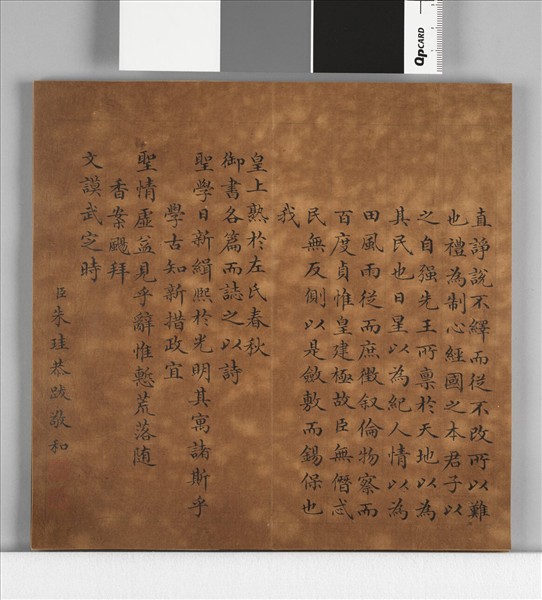 直諍說不繹而從不改所以難
也禮為制心經國之本君子以
之自强先王所禀於天地以為
其民也日星以為紀人情以為
田風雨從而庶徵叙倫物察而
百度貞惟皇建極故臣無僭忒
民無反側以是斂敷而錫保也
我
皇上熟於左氏春秋
御書各篇而誌之以詩
聖學日新緝熙於光明其寓諸斯乎
學古知新措政宜
聖情虛益見乎辭惟慙荒落隨
香案颺拜
文謨武定時
臣朱珪恭跋敬和
QPCARD